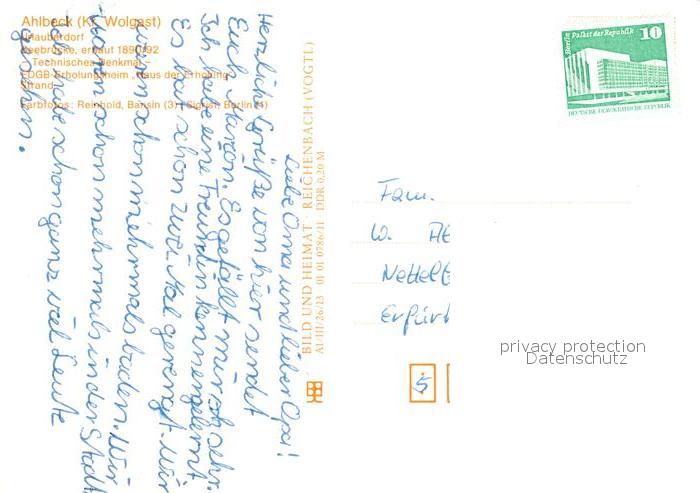 Ahlbeck (Kr. Wolgast)
Seebrücke, erbaut 1890/92
- Technisches Denkmal -
FDGB-Erholungsheim „Haus der Erholung“
Strand
Farbfotos: Reinhold, Bansin (3)
Berlin
Liebe Oma und lieber Opa!
Herzliche Grüße von hier sendet
Euch Marion. Es gefällt mir sehr.
Ich habe eine Freundin kennengelernt
Es hat schon zwei Mal geregnet. Wir
schon mehrmals baden. Wir
waren schon mehrmals in der Stadt
habe schon ganz viel Leute
gesehen.
BILD UND HEIMAT REICHENBACH (VOGTL)
A1/III/26/13 01 01 0786/11 DDR 0,20 M
Berlin Palast der Republik
10
DEUTSCHE DEMOKRATISCHE REPUBLIK
Fam.
W.
Erfurt
5
privacy protection
Datenschutz